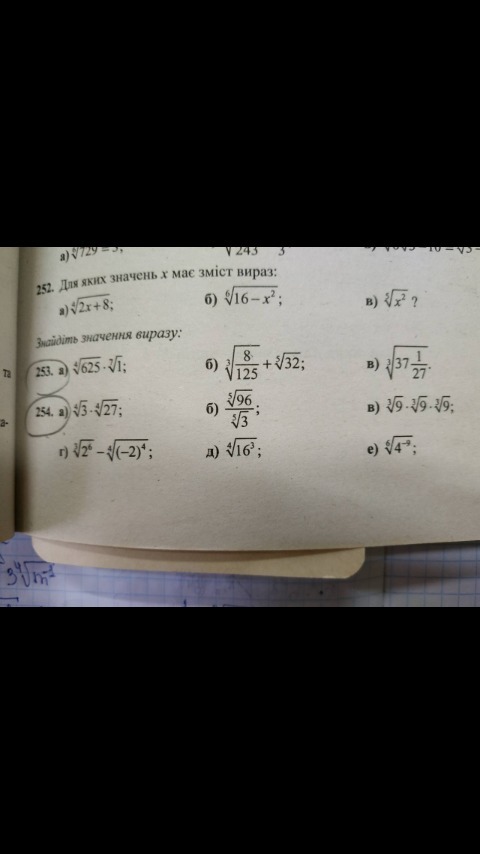 а) ⁶√729 = 3;
252. Для яких значень x має зміст вираз:
а) ⁴√(2x + 8); б) ⁶√(16 – x²); в) ⁵√(x²) ?
Знайдіть значення виразу:
та
253. а) ⁴√625 · ⁷√1; б) ³√(8/125) + ⁵√32; в) ³√(37 1/27).
254. а) ⁴√3 · ⁴√27; б) ⁵√96 / ⁵√3; в) ³√9 · ³√9 · ³√9;
а-
г) ³√(2⁶) – ⁴√((–2)⁴); д) ⁴√(16³); е) ⁶√(4⁻⁹);